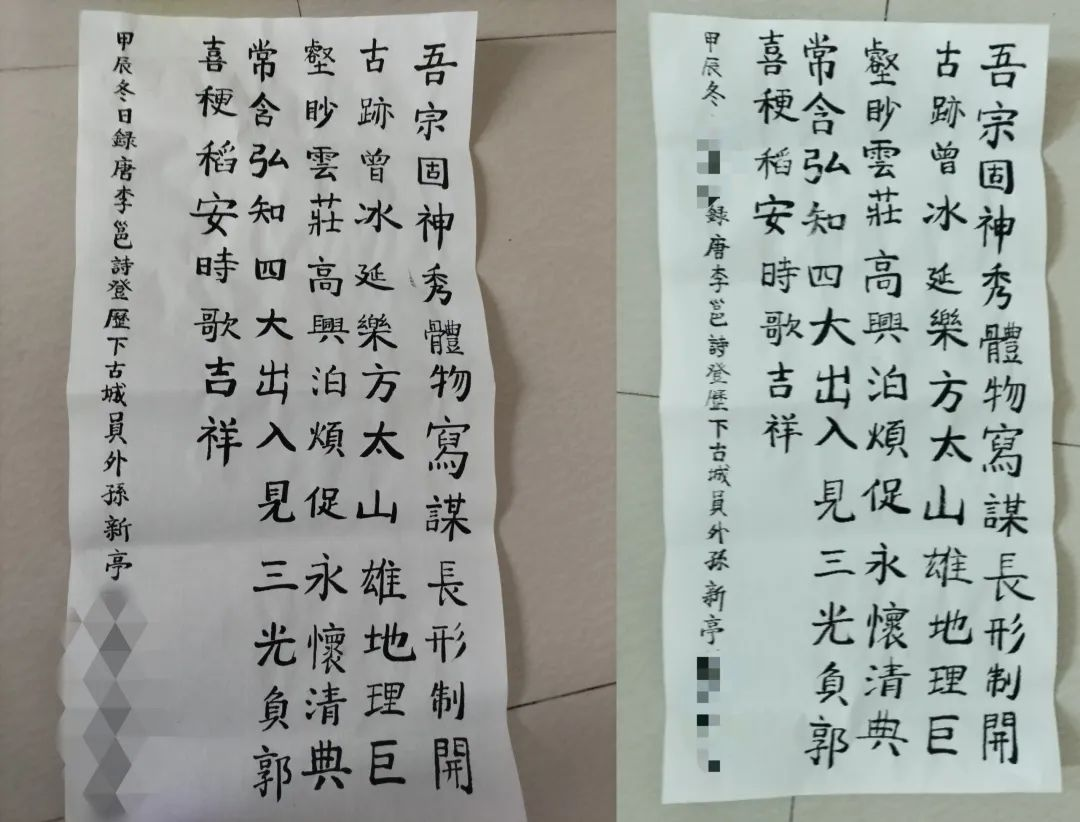 吾宗固神秀體物寫謀長形制開
古跡曾冰延樂方太山雄地理巨
壑眇雲莊高興泊煩促永懷清典
常含弘知四大出入見三光負郭
喜稉稻安時歌吉祥
甲辰冬日錄唐李邕詩登歷下古城員外孫新亭
吾宗固神秀體物寫謀長形制開
古跡曾冰延樂方太山雄地理巨
壑眇雲莊高興泊煩促永懷清典
常含弘知四大出入見三光負郭
喜稉稻安時歌吉祥
甲辰冬錄唐李邕詩登歷下古城員外孫新亭